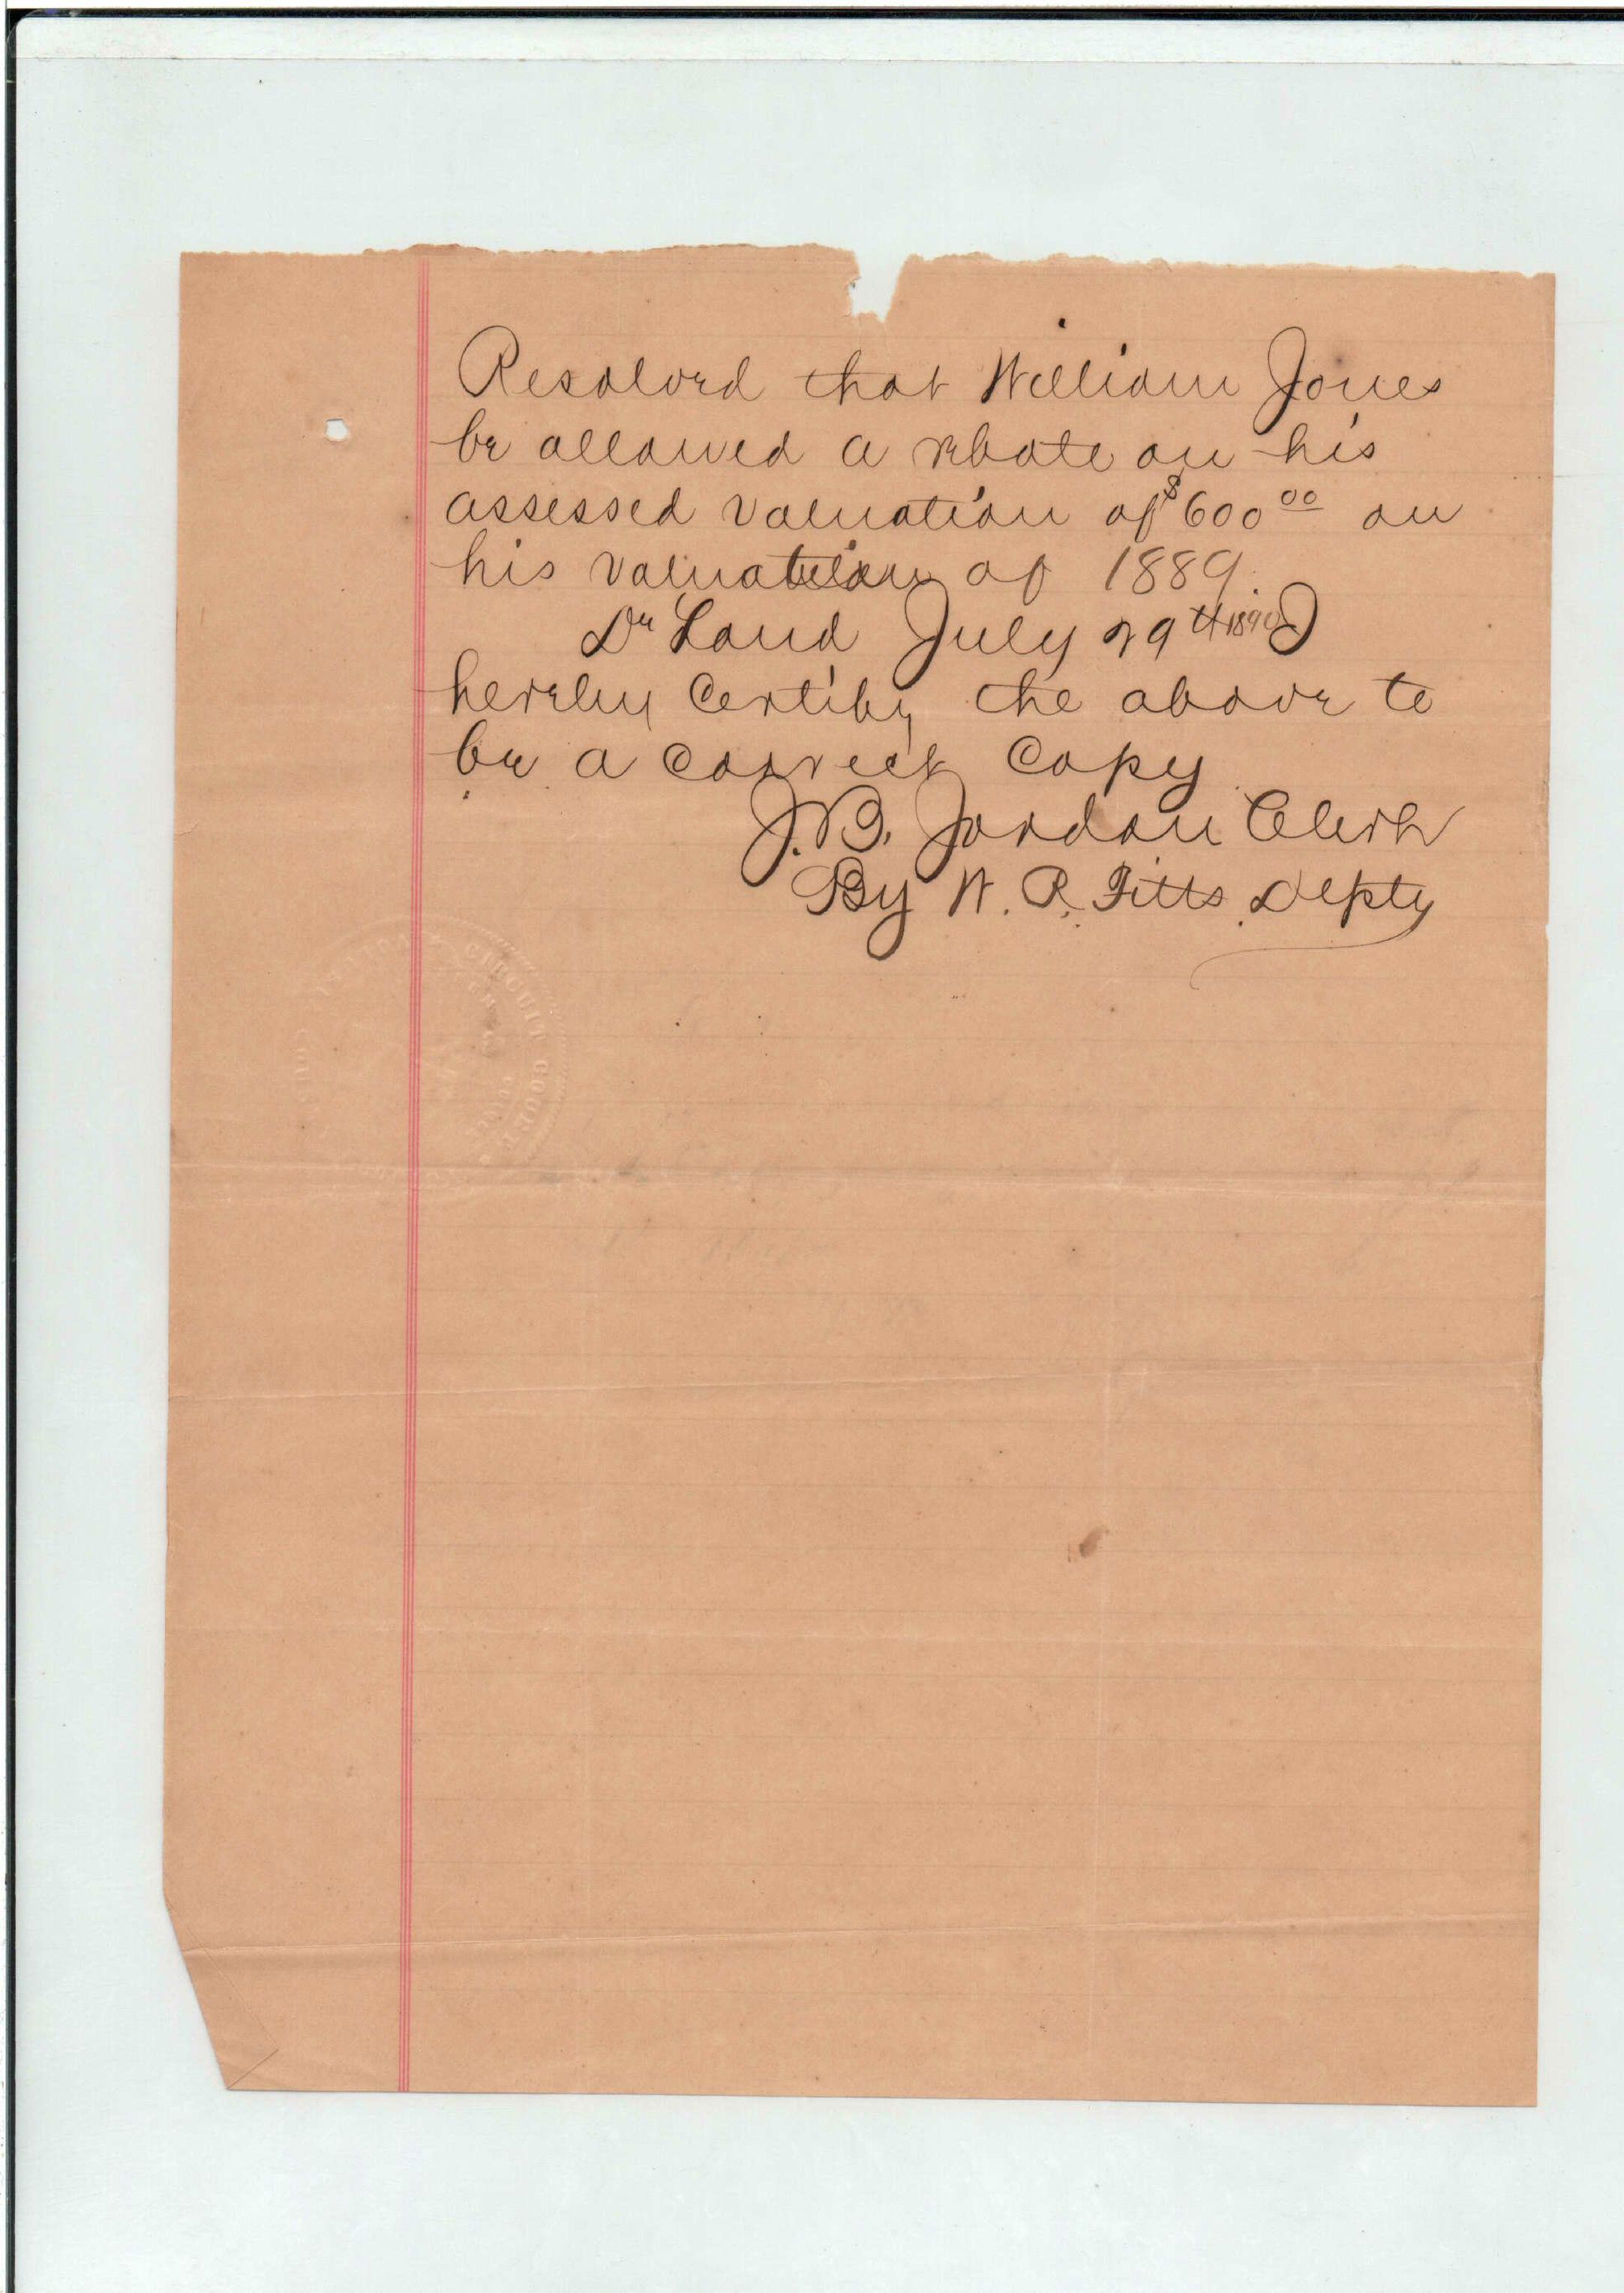 Resolved that William Jones
be allowed a rebate on his
assessed valuation of $600 00 on
his valuation of 1889.
De Land July 29th 1890 I
hereby Certify the above to
be a correct Copy
J. B. Jordan Clerk
By W. R. Fitts Depty
CIRCUIT COURT